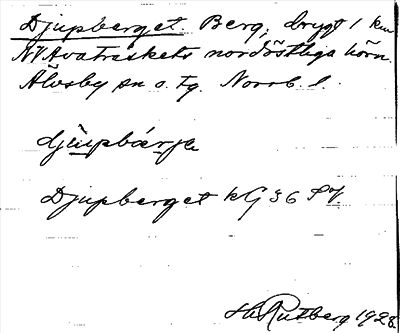 Djupberget Berg, drygt 1 km
NV Avaträskets nordöstliga hörn.
Älvsby sn o. tg. Norrb. l.
djùpbárje
Djupberget kG 36
Rutberg 1928